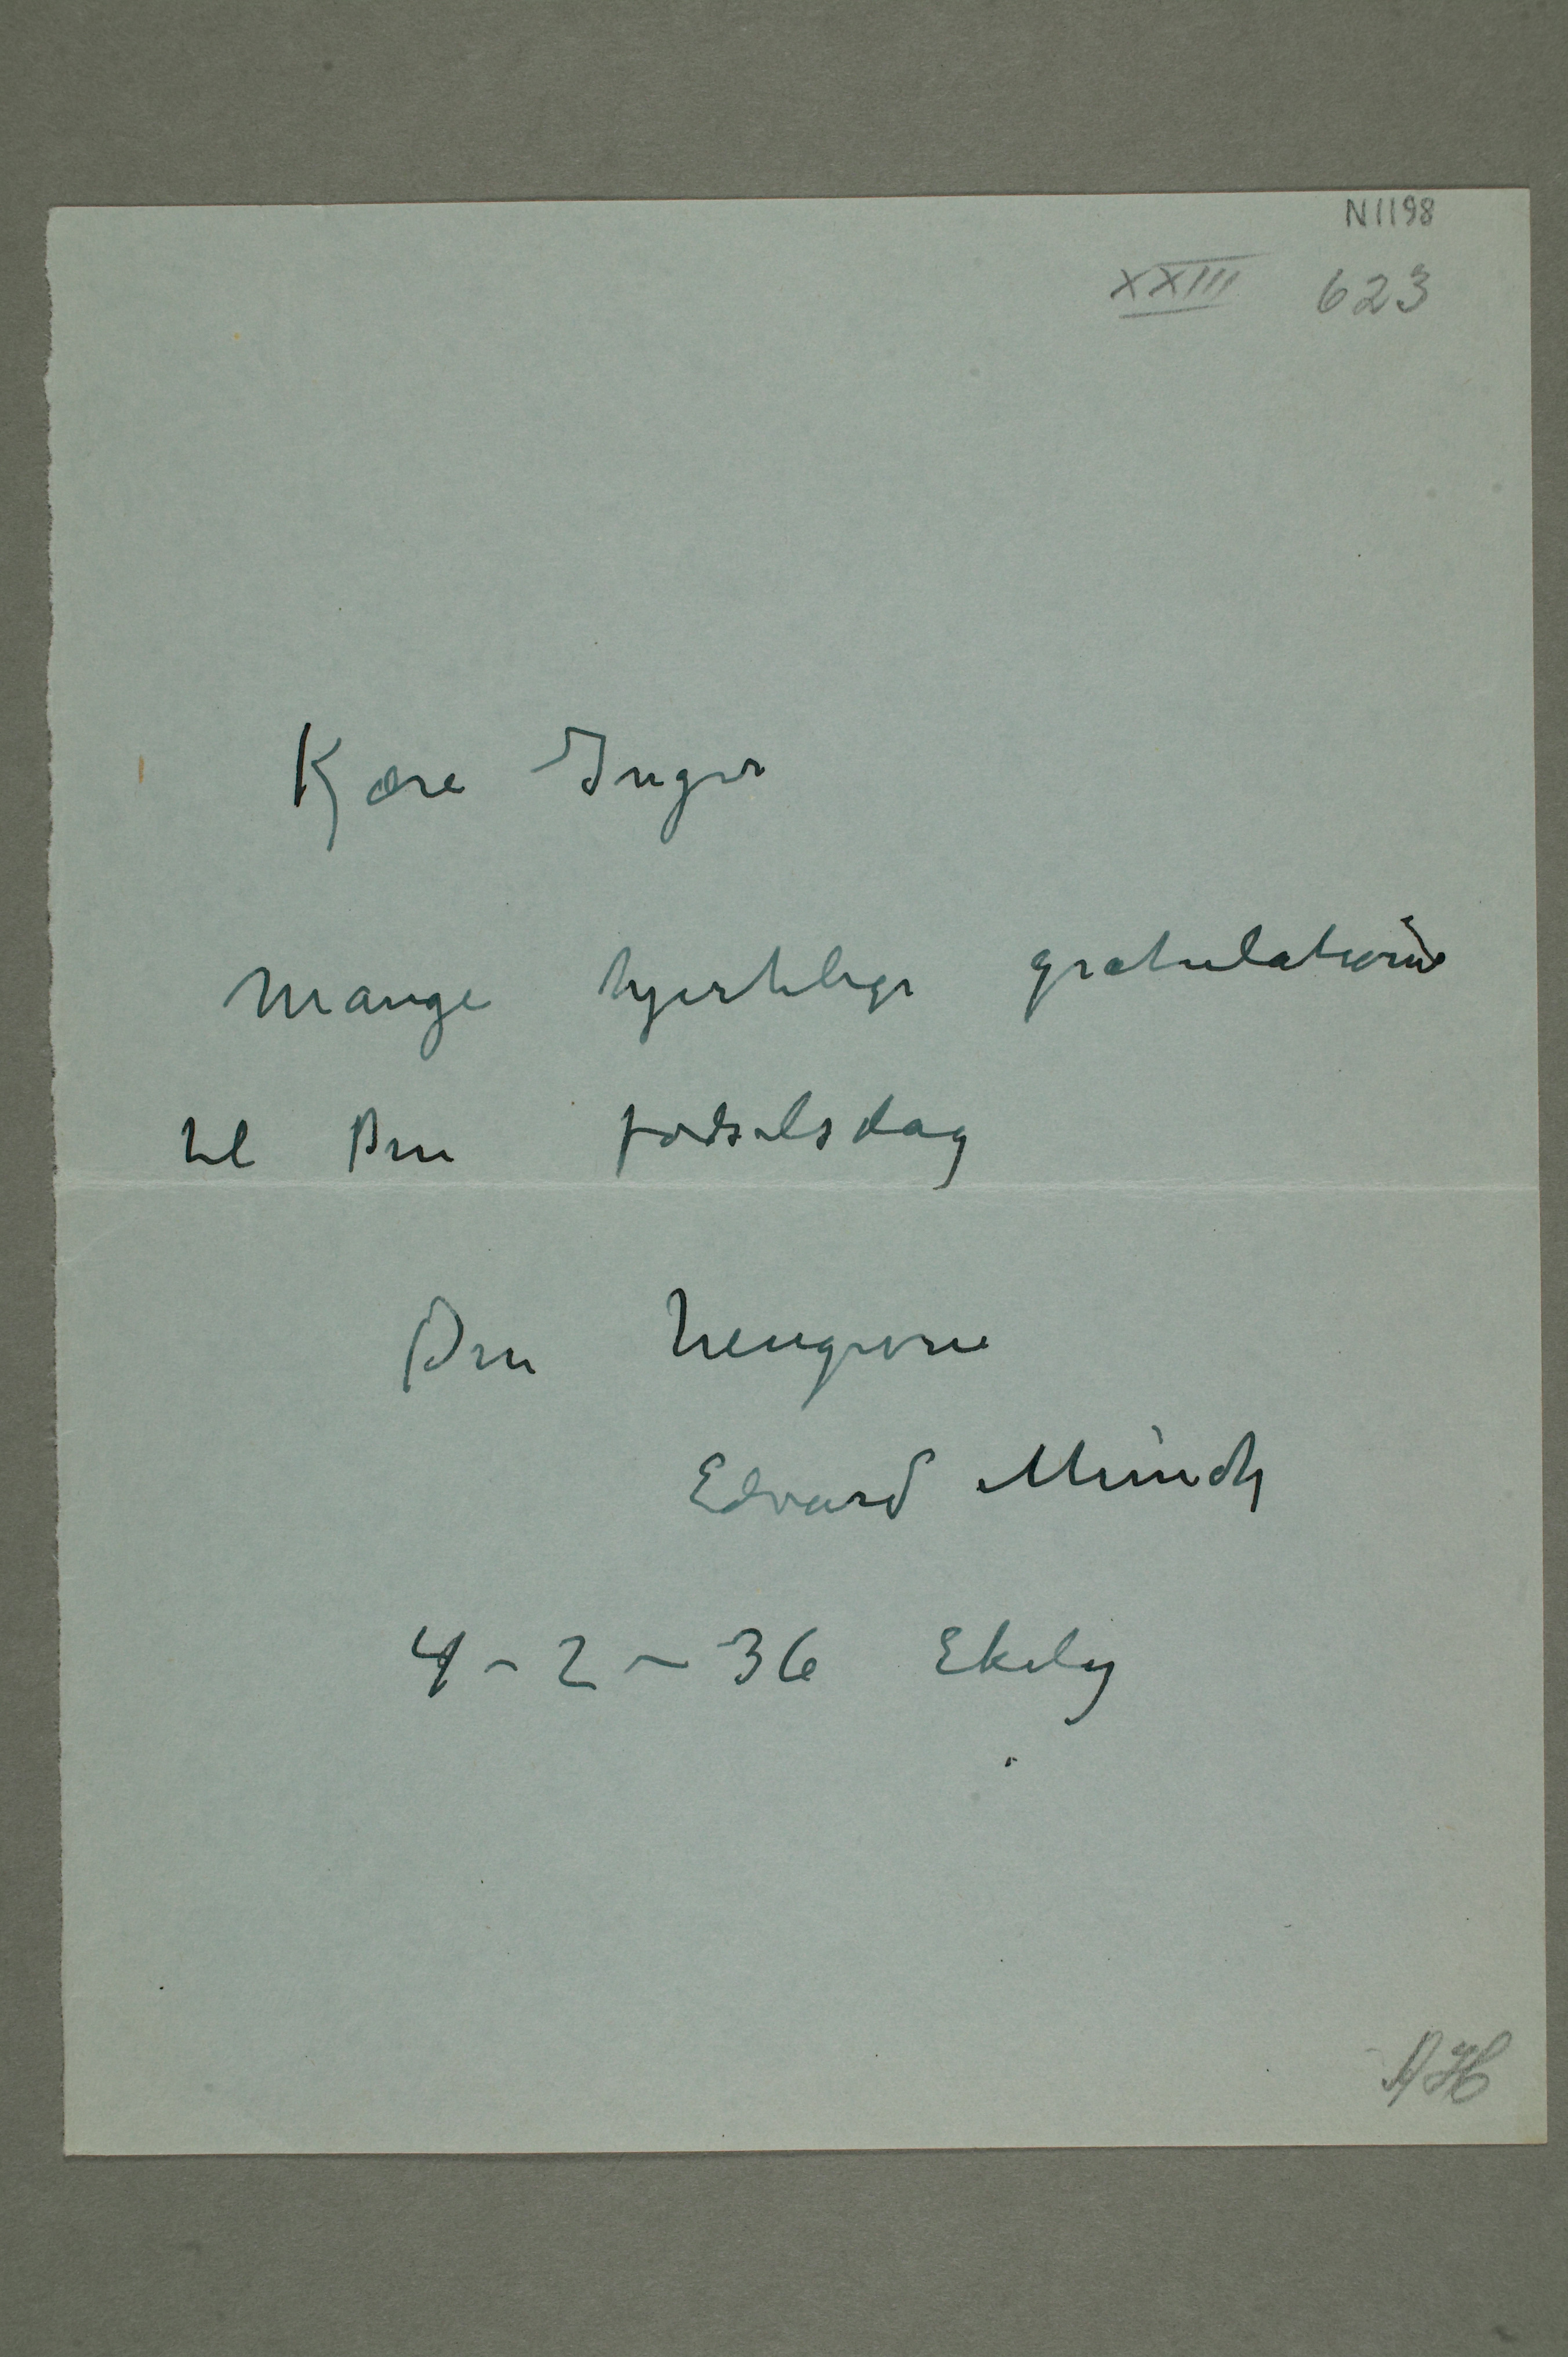 N1198
XXIII 623
Kjære Inger
Mange hjertelige gratulationer
til Din fødselsdag
Din hengivne
Edvard Munch
4-2-36 Ekely